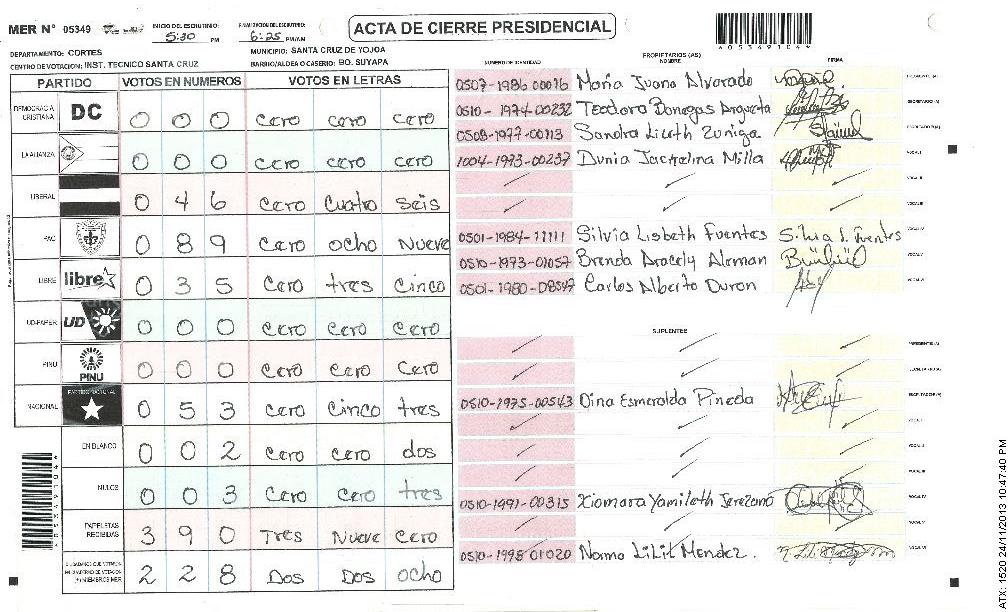 MER Nº 05349
INICIO DEL ESCRUTINIO: 5:30 PM
FINALIZACION DEL ESCRUTINIO: 6:25 PM/AM
ACTA DE CIERRE PRESIDENCIAL
DEPARTAMENTO: CORTES
MUNICIPIO: SANTA CRUZ DE YOJOA
CENTRO DE VOTACION: INST. TECNICO SANTA CRUZ
BARRIO/ALDEA O CASERIO: BO. SUYAPA
PARTIDO VOTOS EN NUMEROS VOTOS EN LETRAS
DEMOCRACIA CRISTIANA DC 0 0 0 cero cero cero
LA ALIANZA 0 0 0 cero cero cero
LIBERAL 0 4 6 cero cuatro seis
PAC 0 8 9 cero ocho nueve
LIBRE libre 0 3 5 cero tres cinco
UD-FAPER UD 0 0 0 cero cero cero
PINU PINU 0 0 0 cero cero cero
NACIONAL PARTIDO NACIONAL 0 5 3 cero cinco tres
EN BLANCO 0 0 2 cero cero dos
NULOS 0 0 3 cero cero tres
PAPELETAS RECIBIDAS 3 9 0 Tres Nueve cero
CIUDADANOS QUE VOTARON EN CUADERNO DE VOTACION Y MIEMBROS MER 2 2 8 Dos Dos ocho
PROPIETARIOS (AS)
NUMERO DE IDENTIDAD NOMBRE FIRMA
0507-1986 00076 Maria Juana Alvarado PRESIDENTE (A)
0510-1974-00232 Teodoro Banegas Argueta SECRETARIO (A)
Sandra Lizeth Zuniga ESCRUTADOR (A)
1004-1973-00237 Dunia Jackelina Milla VOCAL I
VOCAL II
VOCAL III
0501-1984-11111 Silvia Lisbeth Fuentes Silvia L. Fuentes VOCAL IV
0510-1973-01057 Brenda Aracely Aleman VOCAL V
0501-1980-08547 Carlos Alberto Duron VOCAL VI
SUPLENTES
PRESIDENTE (A)
SECRETARIO (A)
0510-1975-00543 Dina Esmeralda Pineda ESCRUTADOR (A)
VOCAL I
VOCAL II
VOCAL III
0510-1991-00315 Xiomara Yamileth Jerezano VOCAL IV
VOCAL V
0510-1995 01020 Norma Lilik Mendez. VOCAL VI
ATX: 1520 24/11/2013 10:47:40 PM